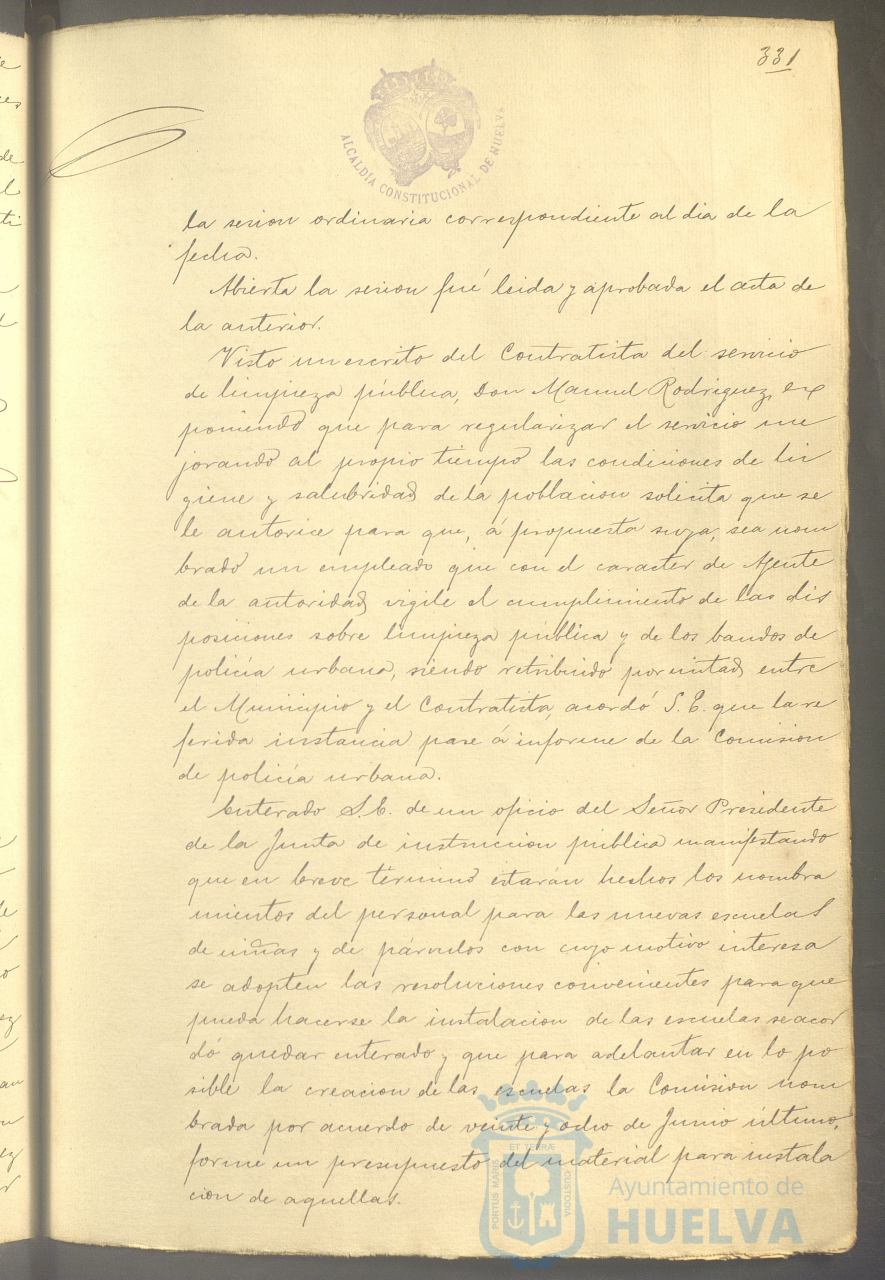 331
ALCALDÍA CONSTITUCIONAL DE HUELVA
la sesion ordinaria correspondiente al dia de la
fecha.
Abierta la sesion fué leida y aprobada el acta de
la anterior.
Visto un escrito del Contratista del servicio
de limpieza pública, Don Manuel Rodriguez, ex
poniendo que para regularizar el servicio me
jorando al propio tiempo las condiciones de hi
giene y salubridad de la poblacion solicita que se
le autorice para que, á propuesta suya, sea nom
brado un empleado que con el caracter de Agente
de la autoridad, vigile el cumplimiento de las dis
posiciones sobre limpieza pública y de los bandos de
policía urbana, siendo retribuido por mitad entre
el Municipio y el Contratista, acordó S. E. que la re
ferida instancia pase á informe de la Comision
de policía urbana.
Enterado S. E. de un oficio del Señor Presidente
de la Junta de instruccion pública manifestando
que en breve término estarán hechos los nombra
mientos del personal para las nuevas escuelas
de niñas y de párvulos con cuyo motivo interesa
se adopten las resoluciones convenientes para que
pueda hacerse la instalacion de las escuelas se acor
dó quedar enterado y que para adelantar en lo po
sible la creacion de las escuelas la Comision nom
brada por acuerdo de veinte y ocho de Junio último,
forme un presupuesto del material para instala
cion de aquellas.
PORTUS MARIS ET TERRÆ CUSTODIA
Ayuntamiento de
HUELVA